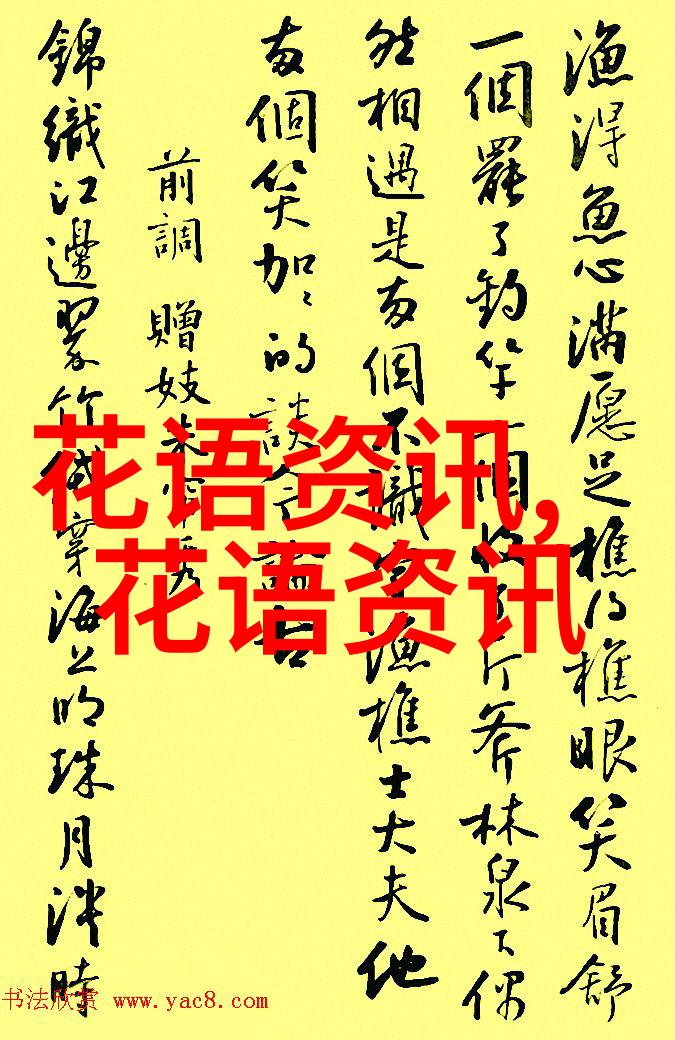 漁得魚心滿愿足樵得樵眼笑眉舒
一個罷了釣竿一個收了斤斧林泉下偶
然相遇是两個不識字漁樵士大夫他
两個笑加加的談今論古
前調 贈妓朱帘秀
錦織江邊翠竹絨穿海上明珠月淡時
花语资讯,
花语资讯
书法欣赏 www.yac8.com